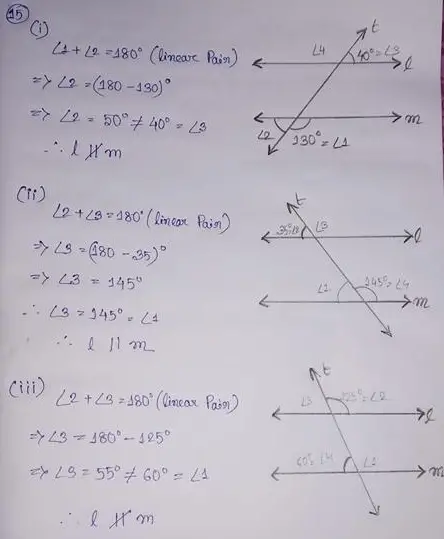 15
(i)
∠1 + ∠2 = 180° (linear Pair)
=> ∠2 = (180 - 130)°
=> ∠2 = 50° ≠ 40° = ∠3
∴ l ∦ m
t
∠4
40° = ∠3
l
m
∠2
130° = ∠1
(ii)
∠2 + ∠3 = 180° (linear Pair)
=> ∠3 = (180 - 35)°
=> ∠3 = 145°
∴ ∠3 = 145° = ∠1
∴ l || m
t
35° = ∠2
∠3
l
∠1
145° = ∠4
m
(iii)
∠2 + ∠3 = 180° (linear Pair)
=> ∠3 = 180° - 125°
=> ∠3 = 55° ≠ 60° = ∠1
∴ l ∦ m
t
∠3
125° = ∠2
l
60° = ∠4
∠1
m